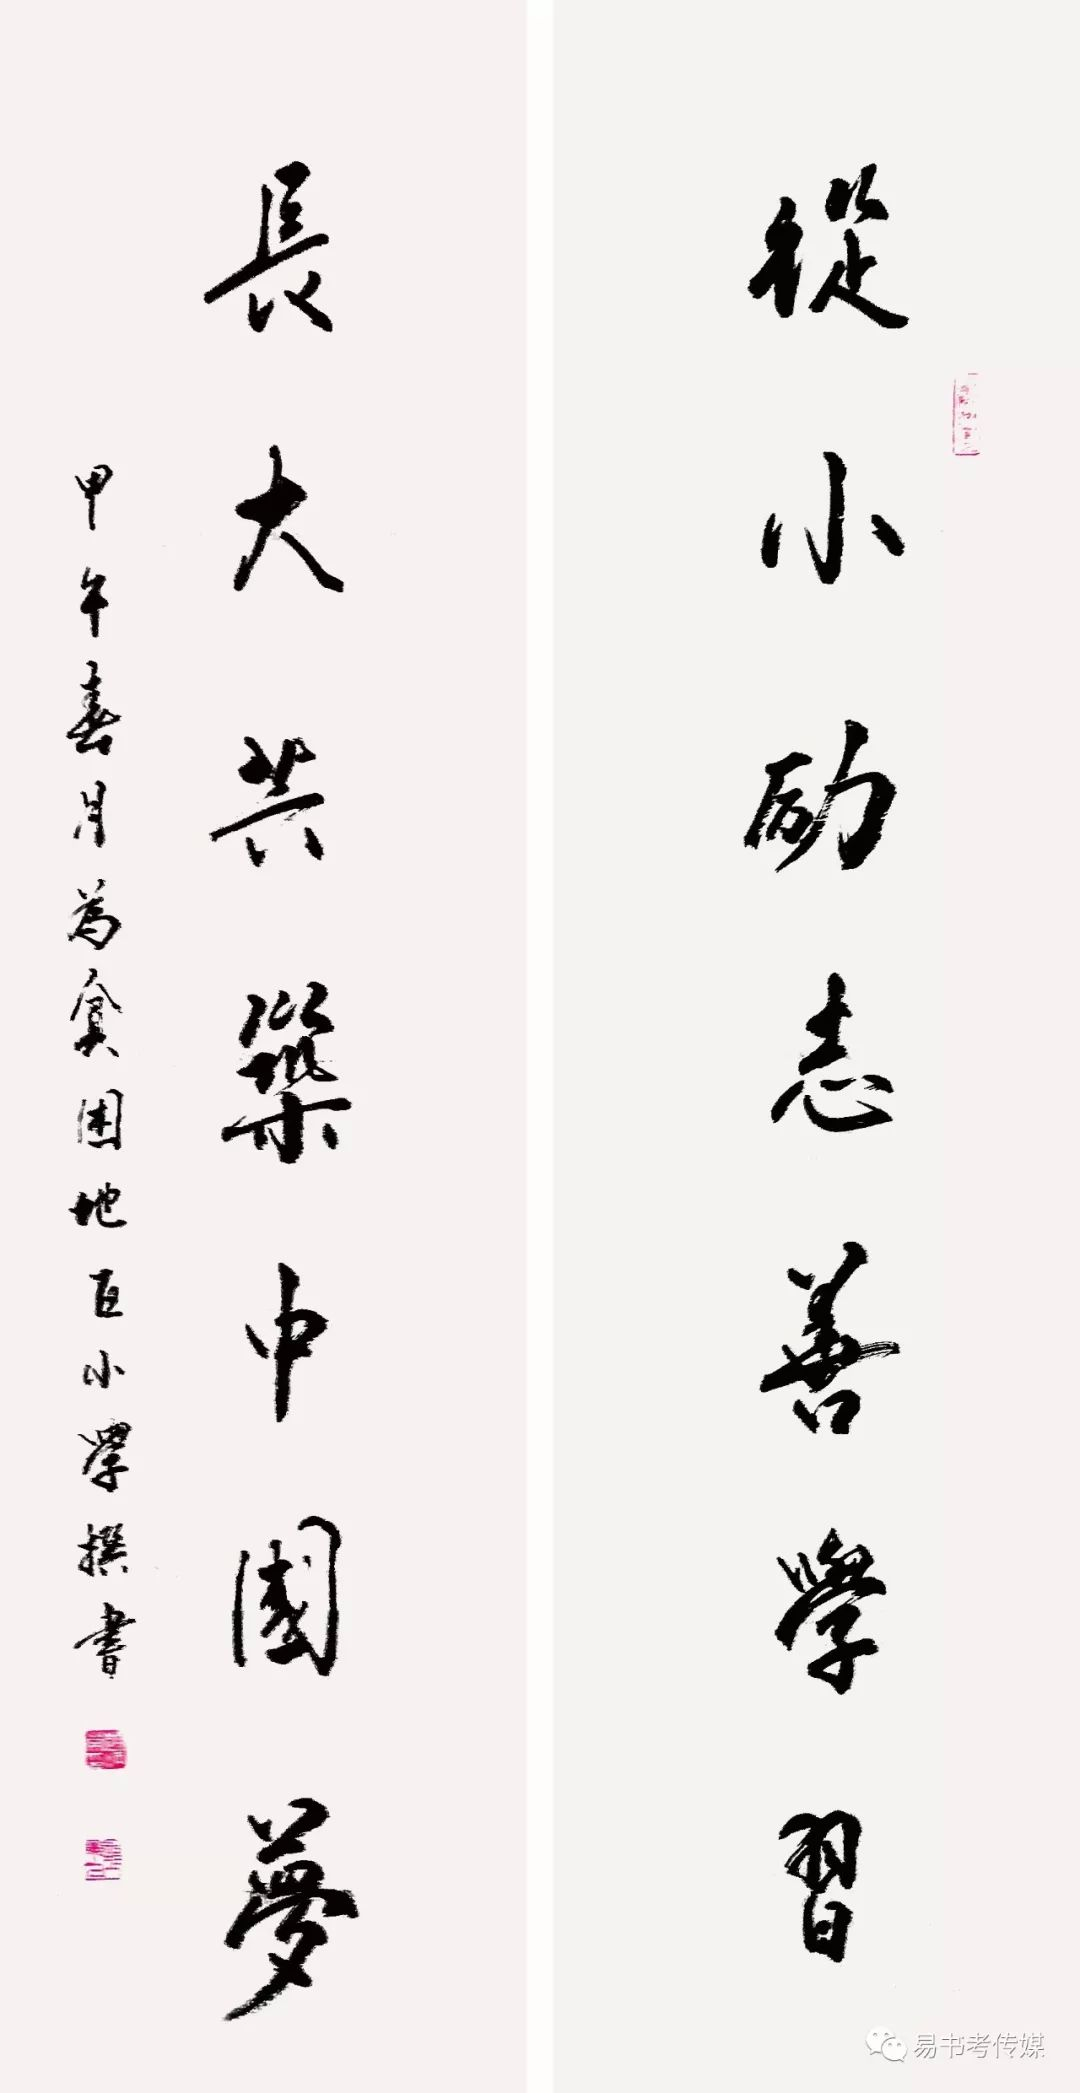 從小励志善學習
長大共築中國夢
甲午春月為貧困地区小學撰書
易书考传媒